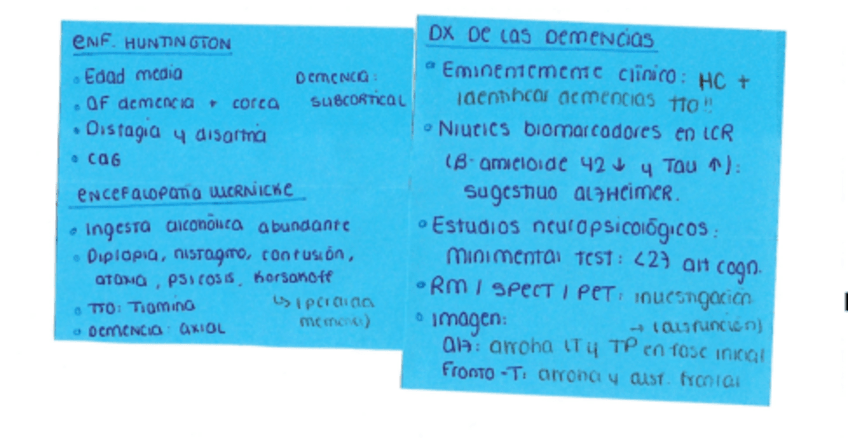 ENF. HUNTINGTON
Edad media
AF demencia + corea
Disfagia y disartria
CAG
DEMENCIA:
SUBCORTICAL
ENCEFALOPATIA WERNICKE
Ingesta alcohólica abundante
Diplopia, nistagmo, confusión,
ataxia, psicosis, Korsakoff
↳ (perdida
memoria)
TTO: Tiamina
DEMENCIA: AXIAL
DX DE LAS DEMENCIAS
Eminentemente clínico: HC +
identificar demencias TTO!!
Niveles biomarcadores en LCR
(β-amieloide 42 ↓ y Tau ↑):
sugestivo ALZHEIMER.
Estudios neuropsicológicos:
Minimental TEST: <27 alt cogn.
RM / SPECT / PET: investigación
Imagen:
→ (disfunción)
Alz: atrofia LT y TP en fase inicial
Fronto-T: atrofia y disf. frontal